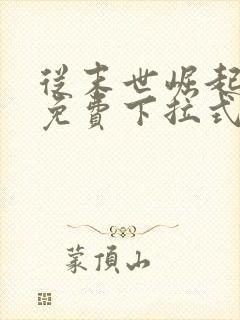 从末世崛起
免費下拉式
蒙頂山